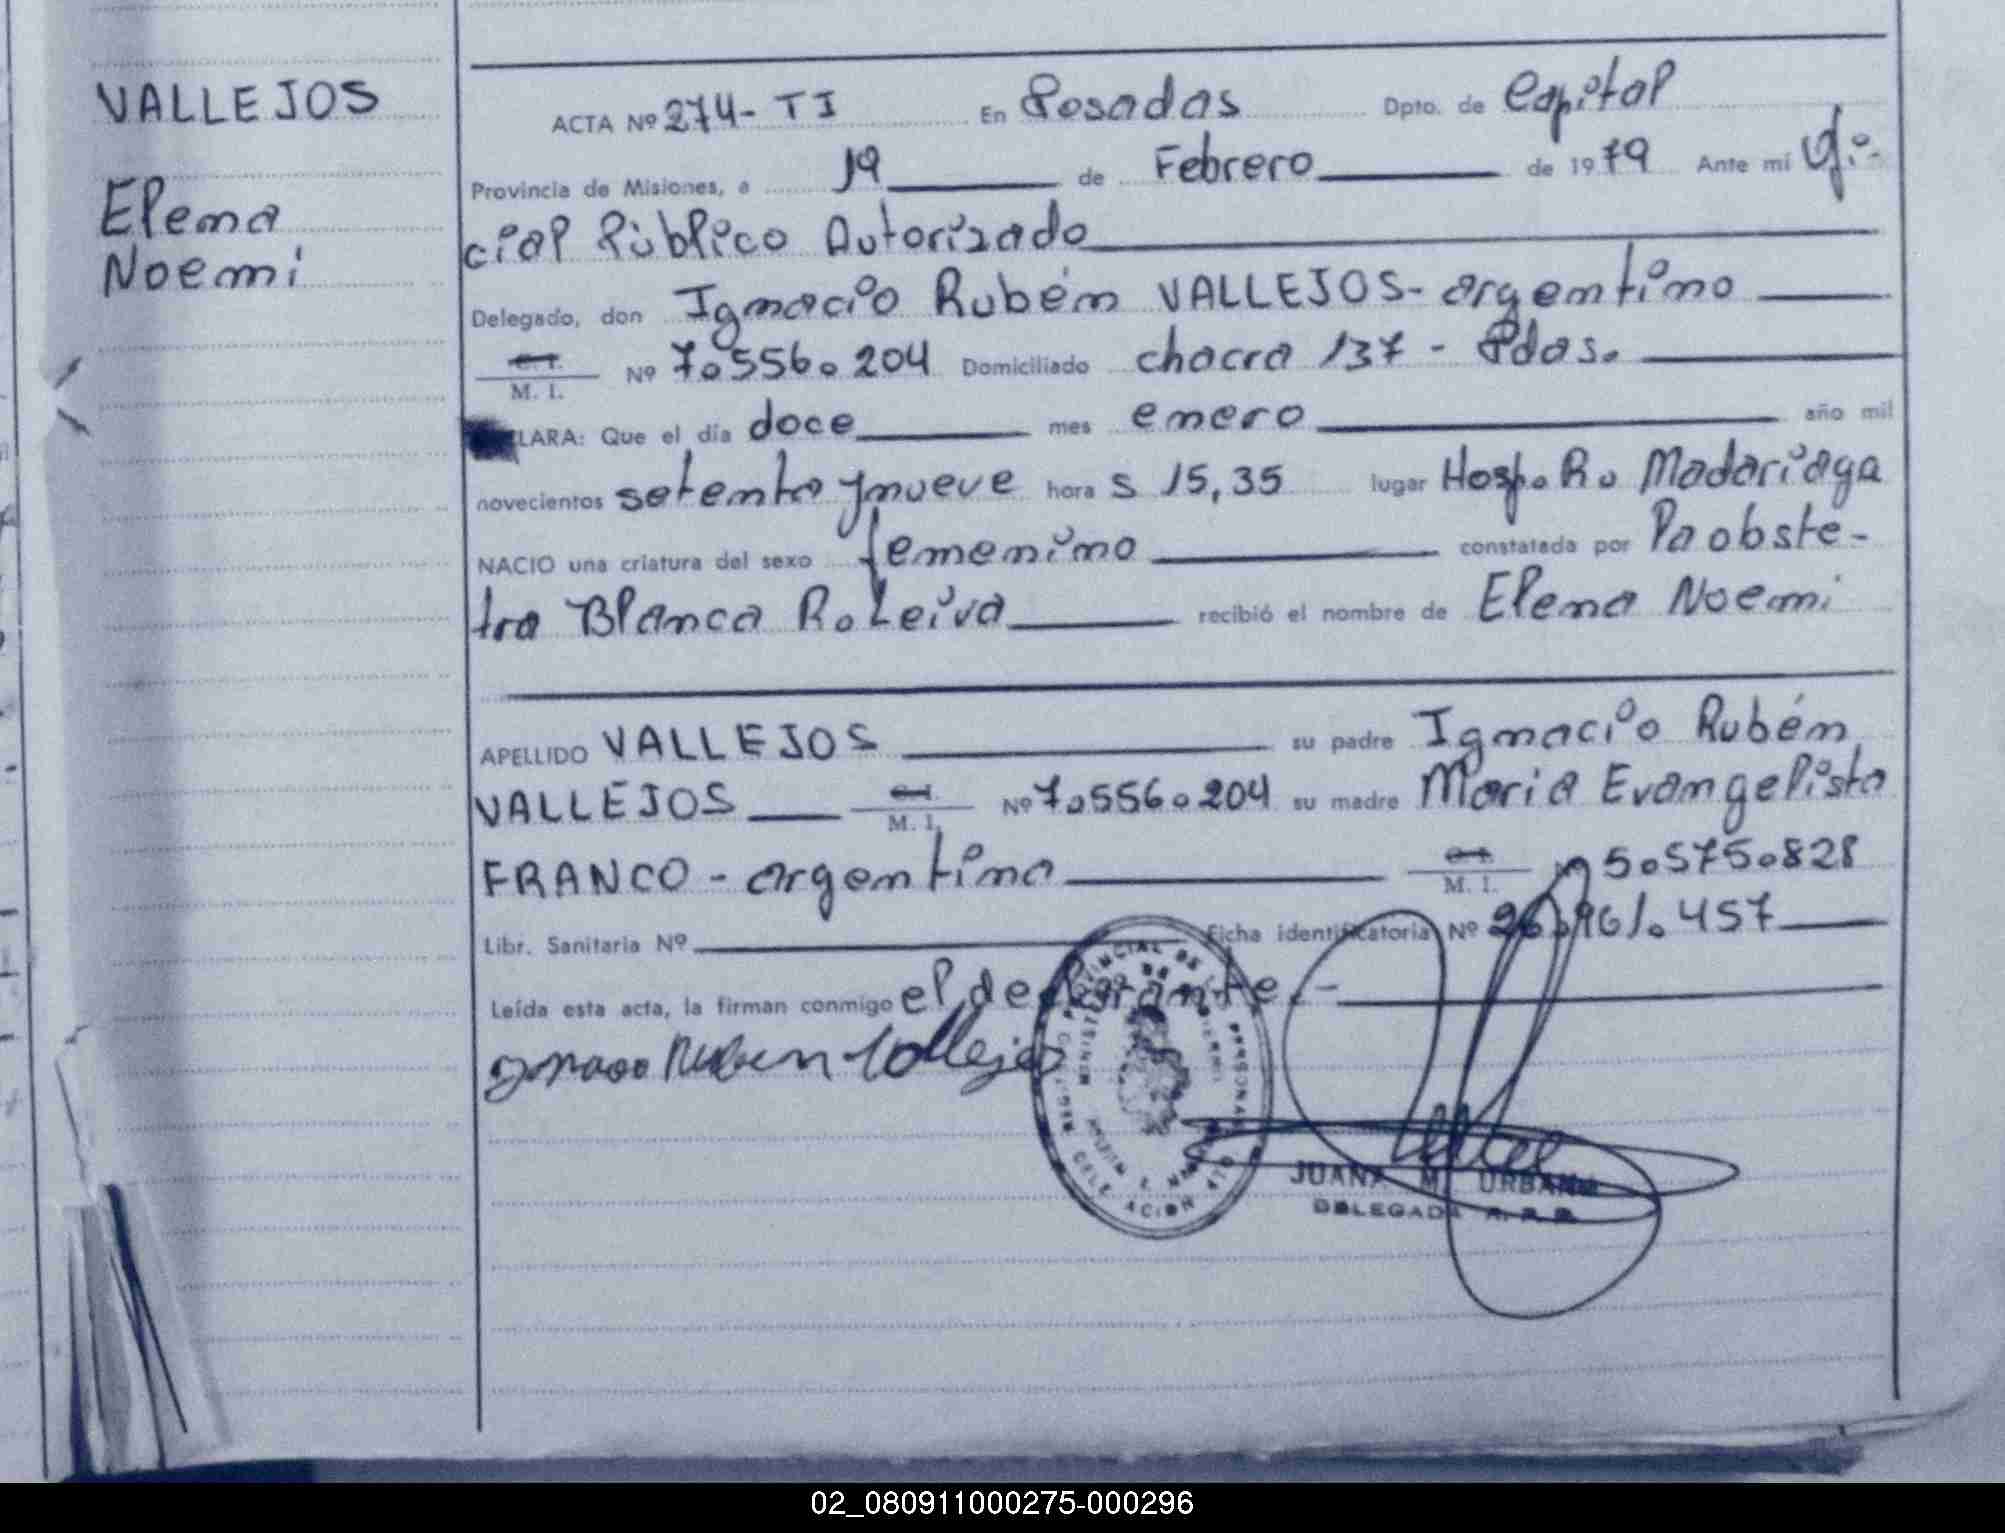 VALLEJOS
Elena
Noemi
ACTA Nº 274- TI En Posadas Dpto. de Capital
Provincia de Misiones, a 19 de Febrero de 1979 Ante mí Ofi-
cial Público Autorizado
Delegado, don Ignacio Rubén VALLEJOS- argentino
C. I.
M. I. Nº 7.556.204 Domiciliado chacra 137 - Pdas.
LARA: Que el día doce mes enero año mil
novecientos setenta y nueve hora s 15,35 lugar Hosp. R. Madariaga
NACIO una criatura del sexo femenino constatada por la obste-
tra Blanca R. Leiva recibió el nombre de Elena Noemi
APELLIDO VALLEJOS su padre Ignacio Rubén
VALLEJOS C. I. M. I. Nº 7.556.204 su madre Maria Evangelista
FRANCO - argentina C. I. M. I. Nº 5.575.828
Libr. Sanitaria Nº Ficha identificatoria Nº 26.961.457
Leída esta acta, la firman conmigo el declarante.-
Ignacio Ruben Vallejos
JUANA M. URBAN
DELEGADA R. P. P.
02_080911000275-000296